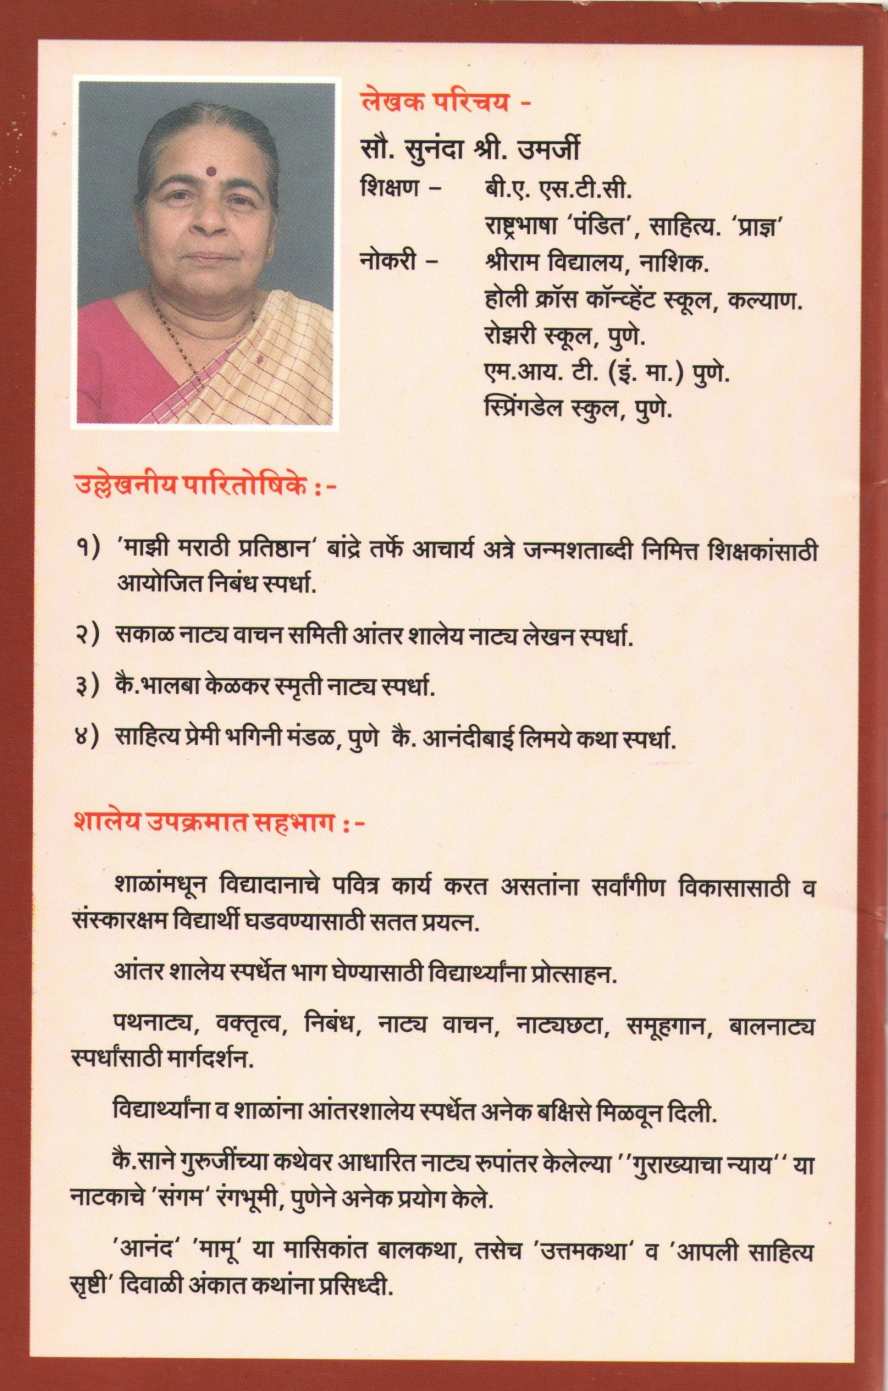 लेखक परिचय -
सौ. सुनंदा श्री. उमर्जी
शिक्षण – बी.ए. एस.टी.सी.
राष्ट्रभाषा ‘पंडित’, साहित्य. ‘प्राज्ञ’
नोकरी – श्रीराम विद्यालय, नाशिक.
होली क्रॉस कॉन्व्हेंट स्कूल, कल्याण.
रोझरी स्कूल, पुणे.
एम.आय. टी. (इं. मा.) पुणे.
स्प्रिंगडेल स्कुल, पुणे.
उल्लेखनीय पारितोषिके :-
१) ’माझी मराठी प्रतिष्ठान‘ बांद्रे तर्फे आचार्य अत्रे जन्मशताब्दी निमित्त शिक्षकांसाठी
आयोजित निबंध स्पर्धा.
२) सकाळ नाट्य वाचन समिती आंतर शालेय नाट्य लेखन स्पर्धा.
३) कै.भालबा केळकर स्मृती नाट्य स्पर्धा.
४) साहित्य प्रेमी भगिनी मंडळ, पुणे कै. आनंदीबाई लिमये कथा स्पर्धा.
शालेय उपक्रमात सहभाग :-
शाळांमधून विद्यादानाचे पवित्र कार्य करत असतांना सर्वांगीण विकासासाठी व
संस्कारक्षम विद्यार्थी घडवण्यासाठी सतत प्रयत्न.
आंतर शालेय स्पर्धेत भाग घेण्यासाठी विद्यार्थ्यांना प्रोत्साहन.
पथनाट्य, वक्तृत्व, निबंध, नाट्य वाचन, नाट्यछटा, समूहगान, बालनाट्य
स्पर्धांसाठी मार्गदर्शन.
विद्यार्थ्यांना व शाळांना आंतरशालेय स्पर्धेत अनेक बक्षिसे मिळवून दिली.
कै.साने गुरुजींच्या कथेवर आधारित नाट्य रुपांतर केलेल्या ’’गुराख्याचा न्याय‘‘ या
नाटकाचे ’संगम‘ रंगभूमी, पुणेने अनेक प्रयोग केले.
’आनंद‘ ’मामू‘ या मासिकांत बालकथा, तसेच ’उत्तमकथा‘ व ’आपली साहित्य
सृष्टी’ दिवाळी अंकात कथांना प्रसिध्दी.